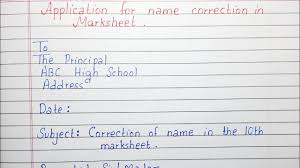 Application for name correction in
Marksheet.
To
The Principal
ABC High School
Address
Date:
Subject: Correction of name in the 10th
marksheet.